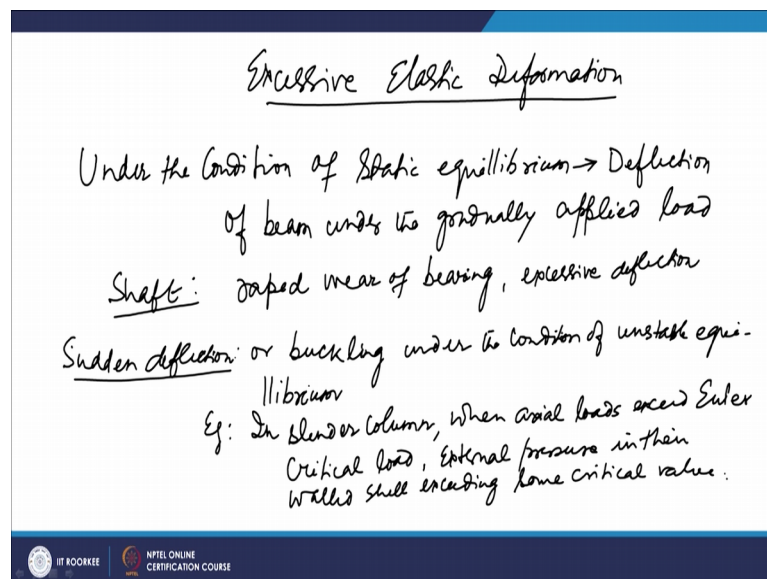 Excessive Elastic Deformation
Under the Condition of Static equillibrium → Deflection
of beam under the gradually applied load
Shaft: raped wear of bearing, excessive deflection
Sudden deflection: or buckling under the condition of unstable equi-
llibrium
Eg: In slender column, when axial loads exceed Euler
Critical load, External pressure in thin
walled shell exceeding some critical value.
IIT ROORKEE
NPTEL ONLINE
CERTIFICATION COURSE